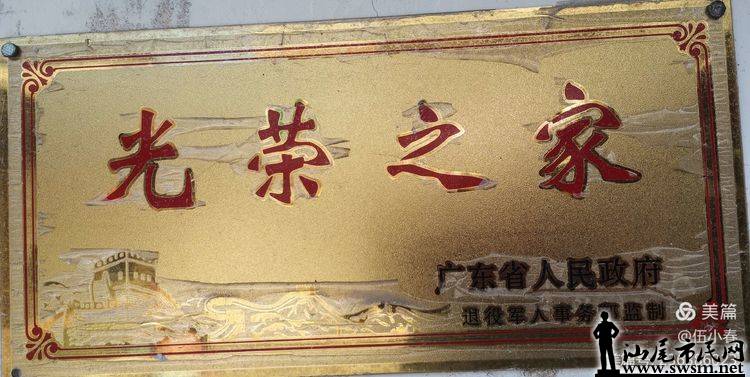 光荣之家
广东省人民政府
退役军人事务部监制
美篇
@伍小春
汕尾市民网
www.swsm.net